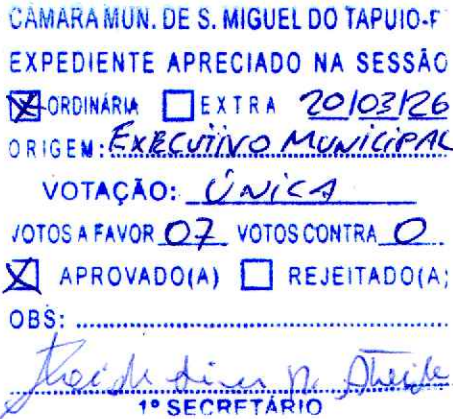 CÂMARA MUN. DE S. MIGUEL DO TAPUIO-
EXPEDIENTE APRECIADO NA SESSÃO
☒ ORDINÁRIA ☐ EXTRA 20/03/26
ORIGEM: EXECUTIVO MUNICIPAL
VOTAÇÃO: ÚNICA
VOTOS A FAVOR 07 VOTOS CONTRA 0
☒ APROVADO(A) ☐ REJEITADO(A)
OBS:
1º SECRETÁRIO